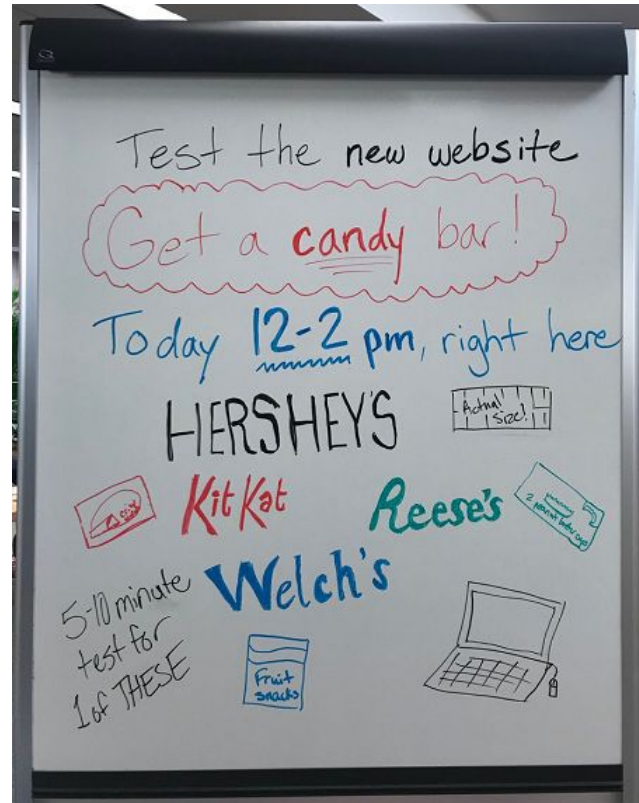 Test the new website
Get a candy bar!
Today 12-2 pm, right here
HERSHEY'S
Actual
size!
Kit Kat
Reese's
2 peanut butter cups
Welch's
5-10 minute
test for
1 of THESE
Fruit
snacks